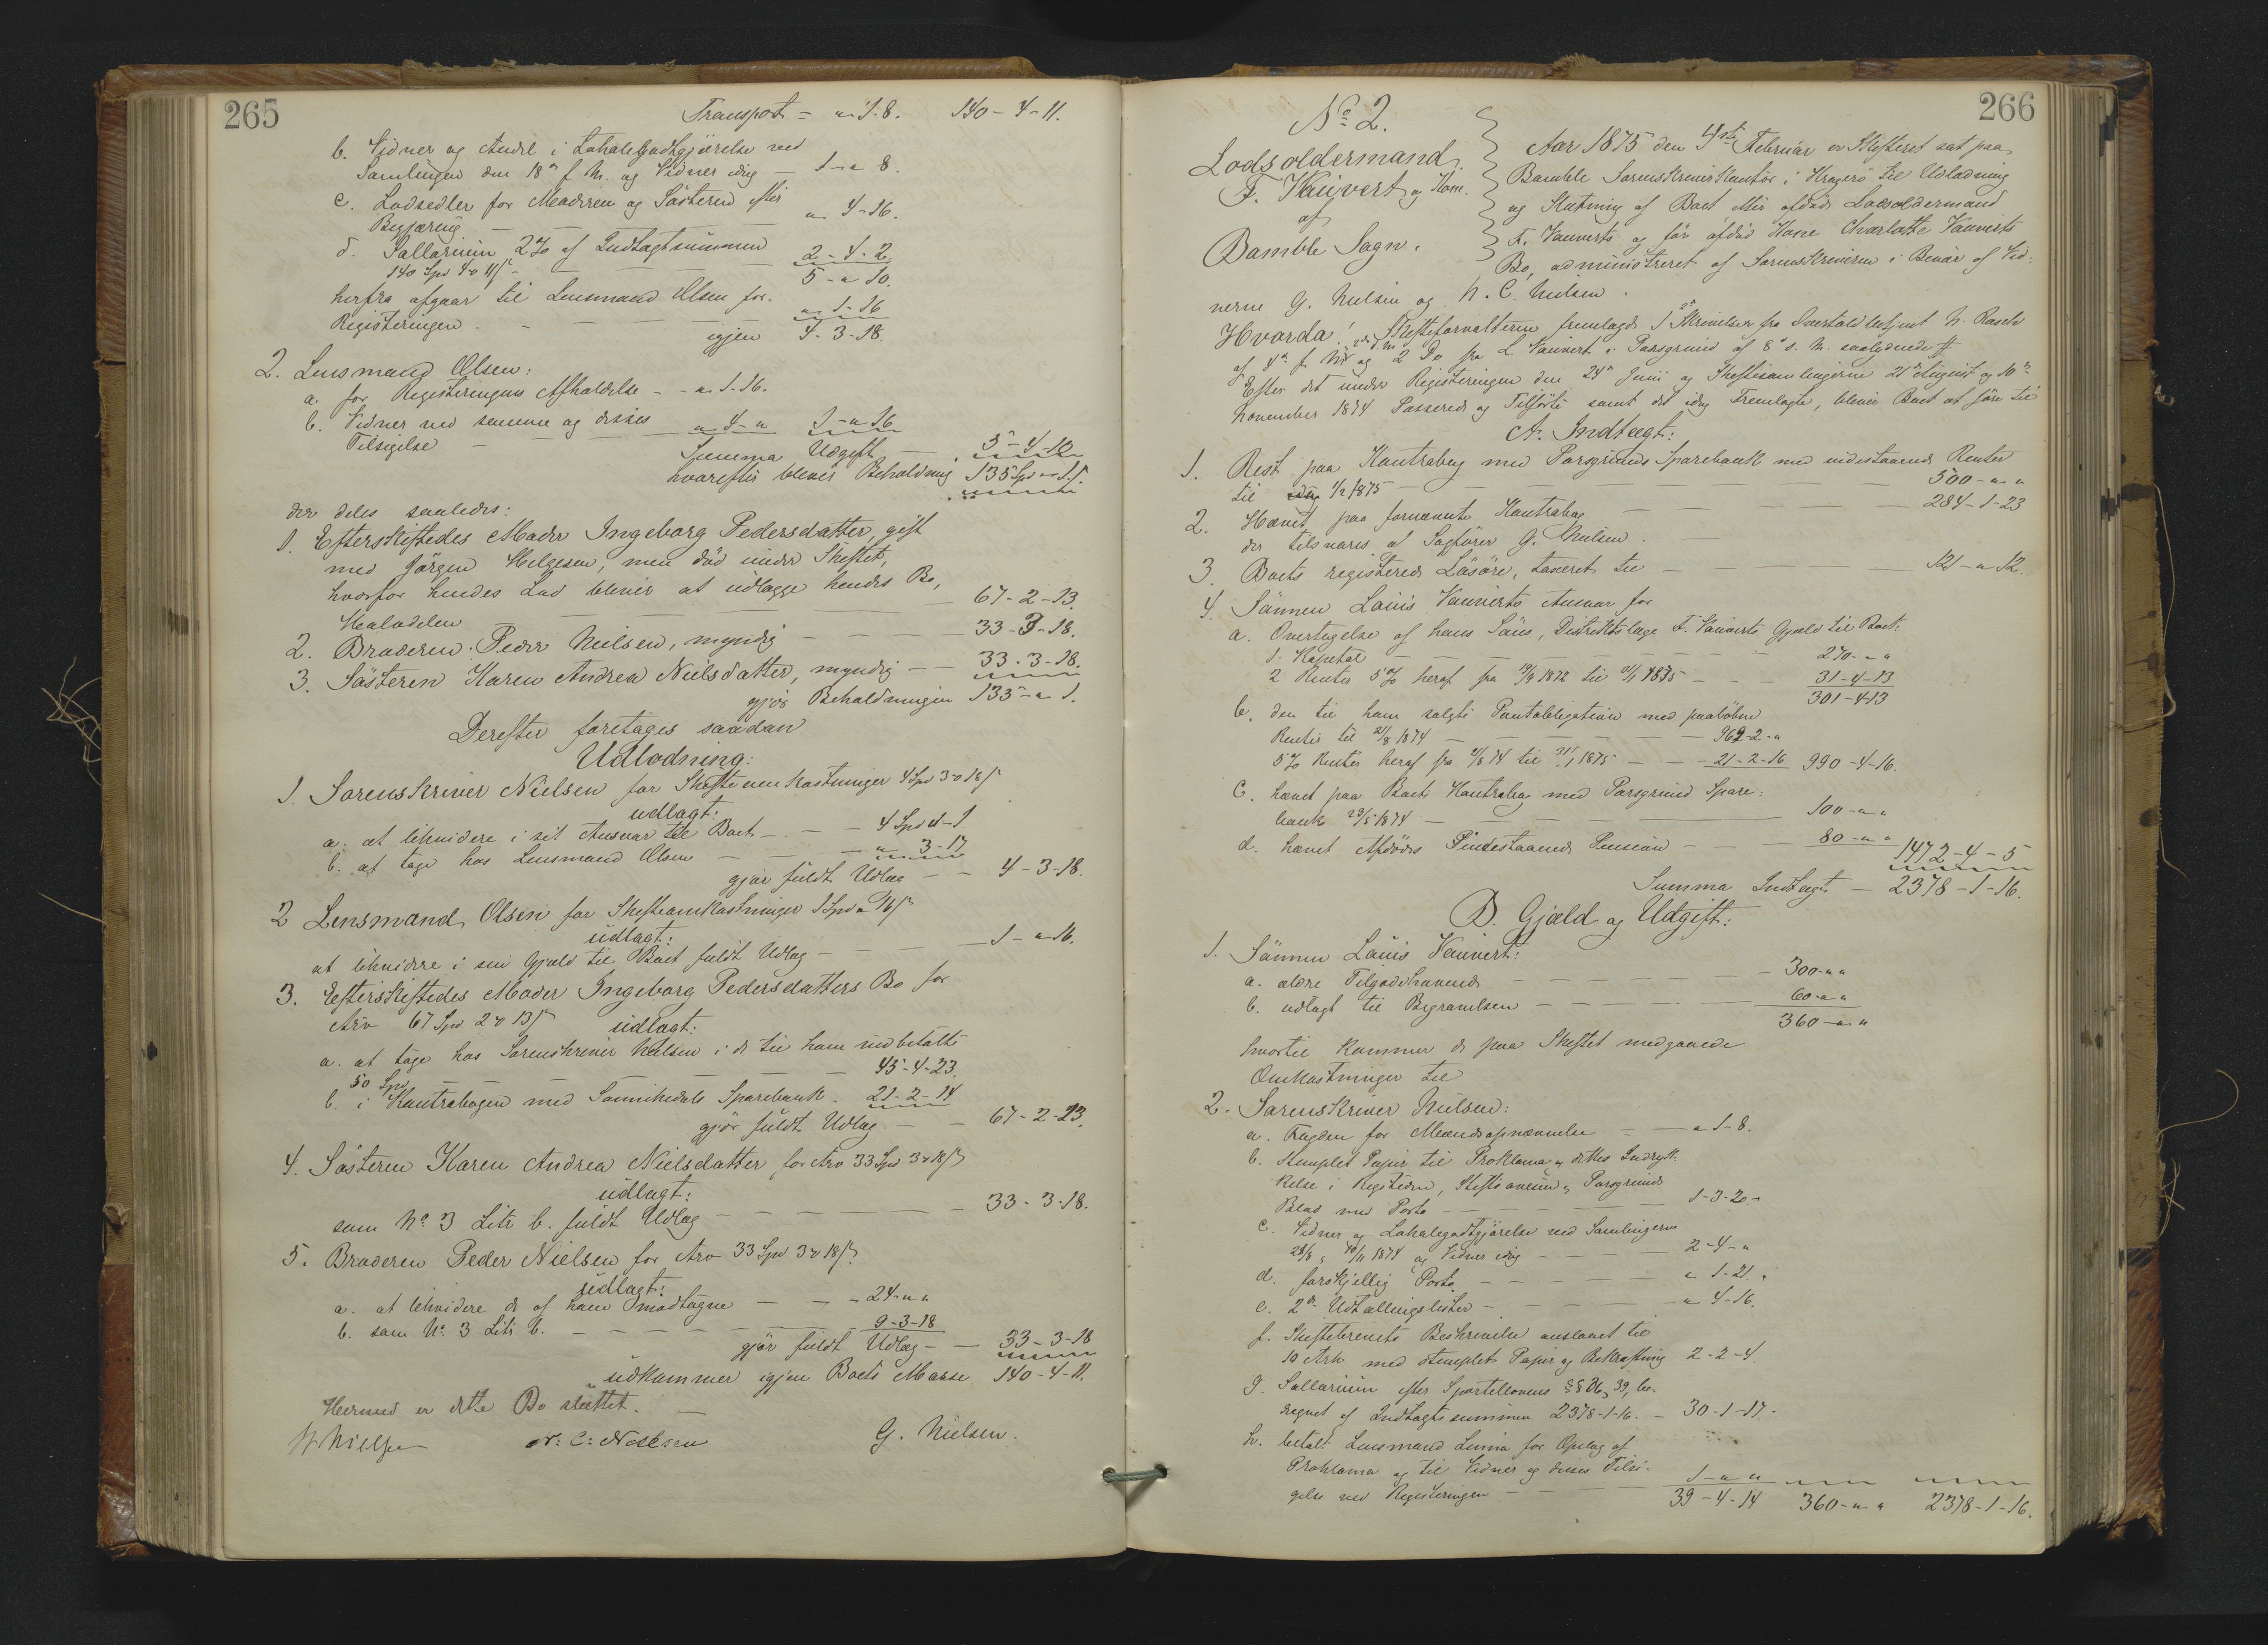 265
Transport - " 1-8. 140-4-11.
b. Vidner og Andel i Lokalegodtgjörelse ved
Samlingen den 18de f. M. og Vidner idag — 1-"-8.
c. Lodsedler for Moderen og Sösteren efter
Begjæring — — " 4-16.
d. Sallarium 2% af Indtægtsummen
140 Spd 4 o 11 ſs — 2-4-2.
5-"-10.
herfra afgaar til Lensmand Olsen for
Registeringen - — " 1-16
igjen 4-3-18.
2. Lensmand Olsen:
a. for Registeringens Afholdelse - - " 1-16.
b. Vidner ved samme og disses
Tilsigelse — " 4-" 1-"-16
Summa Udgift — 5-4-10
hvorefter bliver Beholdning 135 Spd " 1 ſs.
der deles saaledes:
1. Efterskiftedes Moder Ingeborg Pedersdatter, gift
med Jörgen Helgesen, men död under Skiftet,
hvorfor hendes Lod bliver at udlægge hendes Bo,
Halvdelen — 67-2-13.
2. Broderen Peder Nielsen, myndig — 33-3-18.
3. Sösteren Karen Andrea Nielsdatter, myndig — 33-3-18.
gjör Beholdningen 135-"-1.
Derefter foretages saadan
Udlodning:
1. Sorenskriver Nielsen for Skifteomkostninger 4 Spd 3 o 18 ſs
udlagt:
a. at likvidere i sit Ansvar til Boet — 4 Spd "-1
b. at tage hos Lensmand Olsen — " 3-17
gjör fuldt Udlæg — 4-3-18.
2 Lensmand Olsen for Skifteomkostninger 1 Spd " 16 ſs
udlagt:
at likvidere i sin Gjæld til Boet fuldt Udlæg — 1-"-16.
3. Efterskiftedes Moder Ingeborg Pedersdatters Bo for
Arv 67 Spd 2 o 13 ſs udlagt:
a. at tage hos Sorenskriver Nielsen i de til ham indbetalte
50 Spd — 45-4-23.
b. i Kontrabogen med Sannikedals Sparebank - 21-2-14
gjör fuldt Udlæg — 67-2-13.
4. Sösteren Karen Andrea Nielsdatter for Arv 33 Spd 3 o 18 ſs
udlagt:
som No 3 Litr b. fuldt Udlæg — 33-3-18.
5. Broderen Peder Nielsen for Arv 33 Spd 3 o 18 ſs.
udlagt:
a. at likvidere de af ham modtagne — 24-" "
b. som No 3 Litr b. — 9-3-18
gjör fuldt Udlæg — 33-3-18
udkommer igjen Boets Masse 140-4-11.
Hermed er dette Bo sluttet.
N: C: Nielsen G. Nielsen.
266
No 2.
Lodsoldermand
F. Vauvert og Kone
af
Bamble Sogn.
Aar 1875 den 4de Februar er Skifteret sat paa
Bamble Sorenskriverkontor i Kragerö til Udlodning
og Slutning af Boet efter afdöde Lodsoldermand
F. Vauverts og för afdöd Kone Charlotte Vauverts
Bo, administreret af Sorenskriveren i Bivær af Vid-
nerne G. Nielsen og N. C. Nielsen.
Hvorda! Skifteforvalteren fremlagde Skrivelser fra Overtoldbetjent N. Rasch
af 4de f. M. og 2 Do fra L. Vauvert i Porsgrund af 8de s. M. saalydende #
Efter det under Registeringen den 24de Juni og Skiftesamlingerne 21de August og 10de
November 1874 Passerede og Tilförte samt det idag Fremlagte, bliver Boet at före til
A. Indtægt:
1. Rest paa Kontrabog med Porsgrunds Sparebank med indestaaende Renter
til 1/2 1875 — 500-" "
2. Hævet paa fornævnte Kontrabog — 284-1-23
der tilsvares af Sagförer G. Nielsen.
3. Boets registerede Lösöre, taxeret til — 121-"-12.
4. Sönnen Louis Vauverts Ansvar for
a. Overtagelse af hans Söns, Distriktslæge F. Vauverts Gjæld til Boet:
1. Kapital — 270-" "
2 Renter 5% heraf fra 19/9 1872 til 21/1 1875 — 31-4-13
301-4-13
b. den til ham solgte Pantobligation med paalöbne
Renter til 21/8 1874 — 969-2-"
5% Renter heraf fra 21/8 74 til 21/1 1875 — 21-2-16 990-4-16.
c. hævet paa Boets Kontrabog med Porsgrund Spare-
bank 23/5 1874 — 100-" "
d. hævet Afdödes indestaaende Pension — 80-" " 1472-4-5
Summa Indtægt — 2378-1-16.
B. Gjæld og Udgift:
1. Sönnen Louis Vauvert:
a. ældre Tilgodehavende — 300-" "
b. udlagt til Begravelsen — 60-" "
360-" "
hvortil kommer de paa Skiftet medgaaede
Omkostninger til
2. Sorenskriver Nielsen:
a. Fogden for Mændsopnævnelse — " 1-8.
b. Stemplet Papir til Proklama og dettes Indryk-
kelse i Rigstidende, Stiftsavisen og Porsgrunds
Blad med Porto — 1-3-20.
c. Vidner og Lokalegodtgjörelse ved Samlingerne
21/8 og 10/11 1874 og Vidner idag — 2-4-"
d. forskjellig Porto — " 1-21.
e. 2de Udtællingslister — " 4-16.
f. Skiftebrevets Beskrivelse anslaaet til
10 Ark med stemplet Papir og Bekræftning 2-2-4.
g. Sallarium efter Sportellovens §§ 36, 39, be-
regnet af Indtægtssummen 2378-1-16. — 30-1-17.
h. betalt Lensmand Linna for Opslag af
Proklama og til Vidner og disses Tilsi-
gelse ved Registeringen — 1-" "
39-4-14 360-" " 2378-1-16.